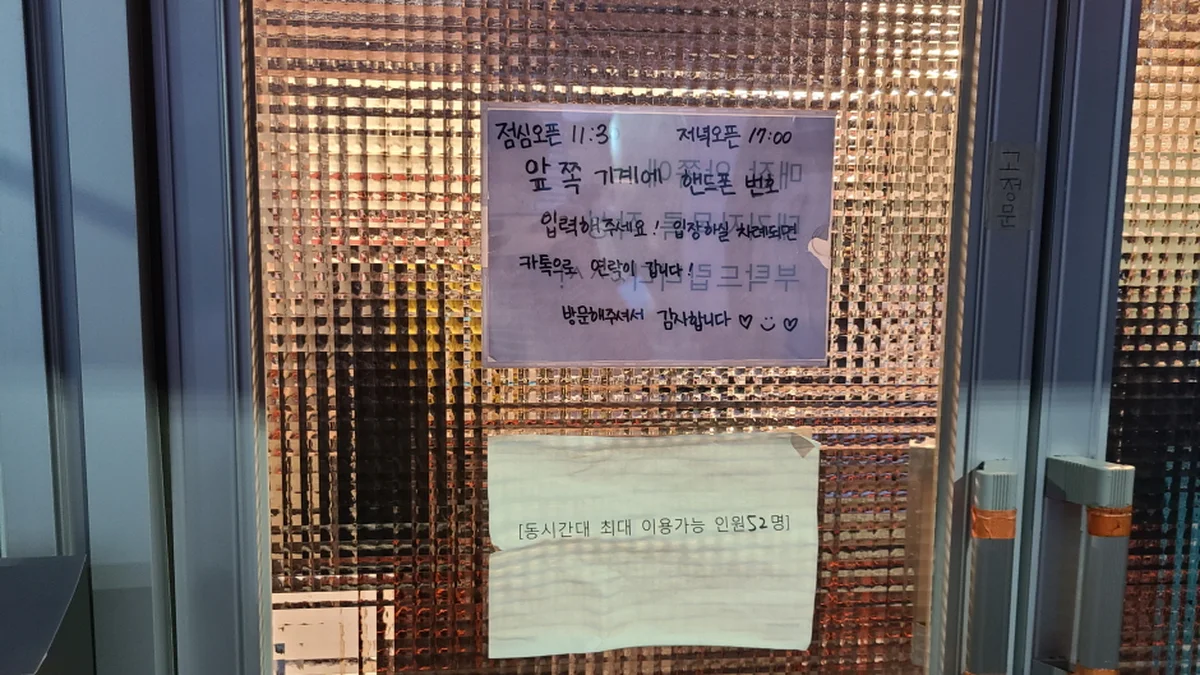 점심오픈 11:3 저녁오픈 17:00
앞쪽 기계에 핸드폰 번호
입력해주세요! 입장하실 차례되면
카톡으로 연락이 갑니다!
방문해주셔서 감사합니다 ♡ ☺ ♡
[동시간대 최대 이용가능 인원52명]
고정문